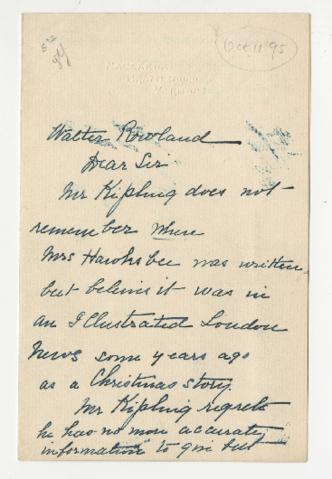 Oct 11 '95
Walter Rowland
Dear Sir
Mr Kipling does not
remember where
Mrs Hawksbee was written
but believes it was in
an Illustrated London
News some years ago
as a Christmas story.
Mr Kipling regrets
he has no more accurate
information to give but